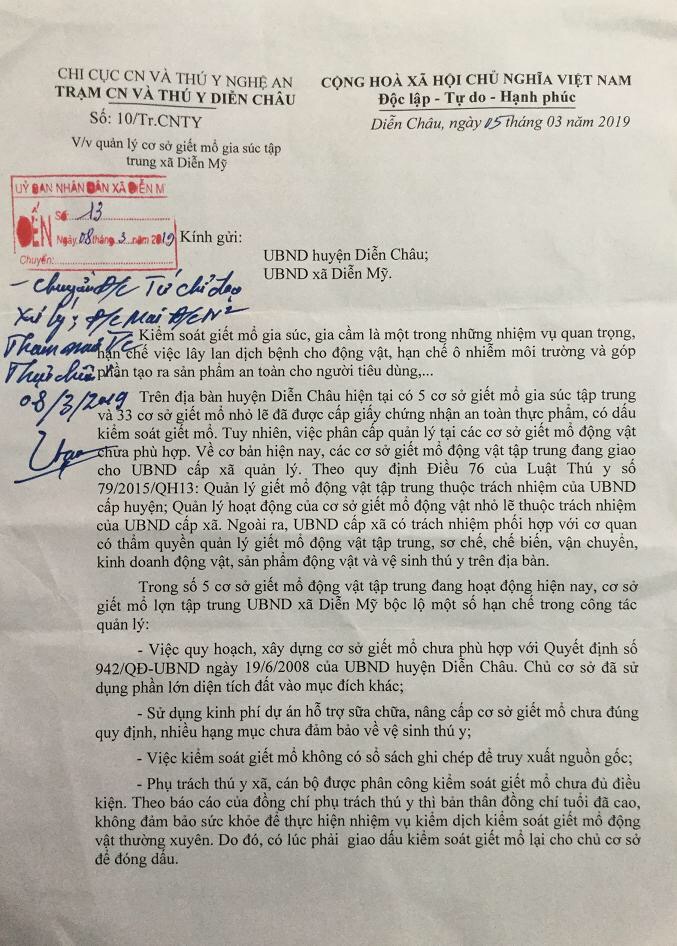 CHI CỤC CN VÀ THÚ Y NGHỆ AN
TRẠM CN VÀ THÚ Y DIỄN CHÂU
Số: 10/Tr.CNTY
V/v quản lý cơ sở giết mổ gia súc tập
trung xã Diễn Mỹ
CỘNG HOÀ XÃ HỘI CHỦ NGHĨA VIỆT NAM
Độc lập - Tự do - Hạnh phúc
Diễn Châu, ngày 05 tháng 03 năm 2019
UỶ BAN NHÂN DÂN XÃ DIỄN M
ĐẾN
Số: 13
Ngày 08 tháng 3 năm 2019
Chuyển:
Kính gửi:
UBND huyện Diễn Châu;
UBND xã Diễn Mỹ.
- Chuyển Đ/c Tú chỉ đạo
xử lý; Đ/c Mai Đ/c N2
Tham mưu
Thực hiện
08/3/2019
Kiểm soát giết mổ gia súc, gia cầm là một trong những nhiệm vụ quan trọng,
hạn chế việc lây lan dịch bệnh cho động vật, hạn chế ô nhiễm môi trường và góp
phần tạo ra sản phẩm an toàn cho người tiêu dùng,...
Trên địa bàn huyện Diễn Châu hiện tại có 5 cơ sở giết mổ gia súc tập trung
và 33 cơ sở giết mổ nhỏ lẽ đã được cấp giấy chứng nhận an toàn thực phẩm, có dấu
kiểm soát giết mổ. Tuy nhiên, việc phân cấp quản lý tại các cơ sở giết mổ động vật
chưa phù hợp. Về cơ bản hiện nay, các cơ sở giết mổ động vật tập trung đang giao
cho UBND cấp xã quản lý. Theo quy định Điều 76 của Luật Thú y số
79/2015/QH13: Quản lý giết mổ động vật tập trung thuộc trách nhiệm của UBND
cấp huyện; Quản lý hoạt động của cơ sở giết mổ động vật nhỏ lẽ thuộc trách nhiệm
của UBND cấp xã. Ngoài ra, UBND cấp xã có trách nhiệm phối hợp với cơ quan
có thẩm quyền quản lý giết mổ động vật tập trung, sơ chế, chế biến, vận chuyển,
kinh doanh động vật, sản phẩm động vật và vệ sinh thú y trên địa bàn.
Trong số 5 cơ sở giết mổ động vật tập trung đang hoạt động hiện nay, cơ sở
giết mổ lợn tập trung UBND xã Diễn Mỹ bộc lộ một số hạn chế trong công tác
quản lý:
- Việc quy hoạch, xây dựng cơ sở giết mổ chưa phù hợp với Quyết định số
942/QĐ-UBND ngày 19/6/2008 của UBND huyện Diễn Châu. Chủ cơ sở đã sử
dụng phần lớn diện tích đất vào mục đích khác;
- Sử dụng kinh phí dự án hỗ trợ sữa chữa, nâng cấp cơ sở giết mổ chưa đúng
quy định, nhiều hạng mục chưa đảm bảo về vệ sinh thú y;
- Việc kiểm soát giết mổ không có sổ sách ghi chép để truy xuất nguồn gốc;
- Phụ trách thú y xã, cán bộ được phân công kiểm soát giết mổ chưa đủ điều
kiện. Theo báo cáo của đồng chí phụ trách thú y thì bản thân đồng chí tuổi đã cao,
không đảm bảo sức khỏe để thực hiện nhiệm vụ kiểm dịch kiểm soát giết mổ động
vật thường xuyên. Do đó, có lúc phải giao dấu kiểm soát giết mổ lại cho chủ cơ sở
để đóng dấu.